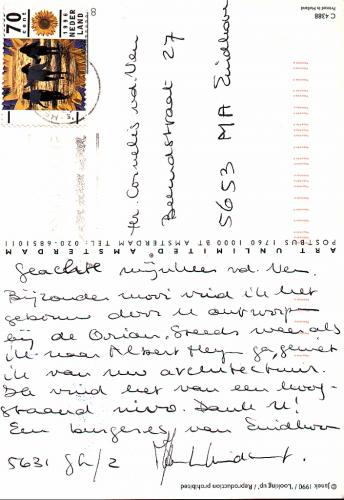 C 4388
Printed in Holland
70
cent
1996
NEDER
LAND
Hr. Cornelis v.d. Ven
5653 MA Eindhoven
ART UNLIMITED AMSTERDAM
POSTBUS 1760 1000 BT AMSTERDAM TEL: 020-6851011
Geachte mijnheer v.d. Ven.
Bijzonder mooi vind ik het
gebouw door U ontworpen
bij de Orion. Steeds weer als
ik naar Albert Heyn ga, geniet
ik van uw architectuur.
Ik vind het van een hoog-
staand nivo. Dank U!
Een burgeres van Eindhoven
5631
© Janek / 1990 / 'Looking up' / Reproduction prohibited